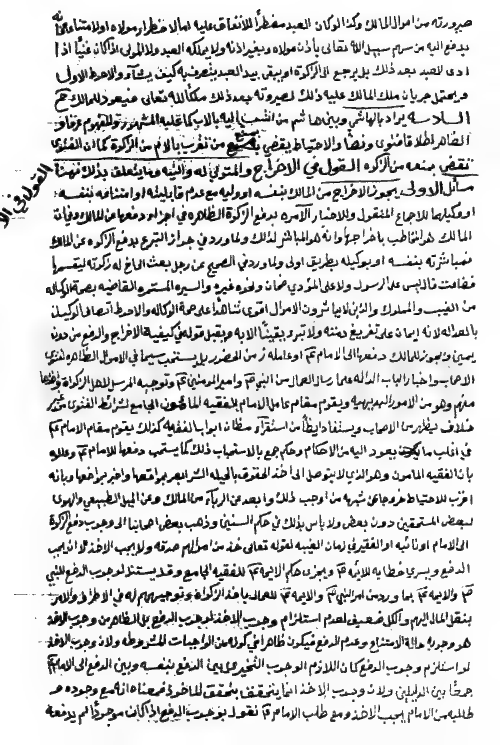 صيرورته من اموال المالك وكذا لو كان العبد مضطراً للانفاق عليه اما لاضطرار مولاه او لامتناعه فانه
يدفع اليه من سهم سبيل الله تعالى باذن مولاه وبغير اذنه ولا يملكه العبد ولا المولى اذا كان غنياً اذا
ادى للعبد بعد ذلك بل يرجع الى الزكوة او يبقى بيد العبد يتصرف به كيف يشاء والاحوط الاولى
ويحتمل جريان ملك المالك عليه ذلك لصيرورته بعد ذلك ملكاً لله تعالى فيعود للمالك
السادسة يراد بالهاشمي وبني هاشم من انتسب اليه بالاب كما عليه المشهور وللمفهوم عرفا و
الظاهر اطلاقا فتوى ونصاً والاحتياط يقضي بمنع من تقرب بالام من الزكوة كما ان الفتوى
تقضي بمنعه من الزكوة القول في الاخراج والمتولي له والنية وما يتعلق بذلك فهنا
القول في الا
مسائل الاولى يجوز الاخراج من المالك بنفسه او وليه مع عدم قابليته او امتناعه بنفسه
او وكيلهما للاجماع المنقول وللاخبار الآمره بدفع الزكوة الظاهره في اجزاء دفعها من المالك ولان
المالك هو المخاطب باخراجها وانه هو المباشر لذلك ولما ورد في جواز التبرع بدفع الزكوة عن المالك
فمباشرته بنفسه او بوكيله بطريق اولى ولما ورد في الصحيح عن رجل بعث الى اخ له زكوته ليقسمها
فضاعت قال ليس على الرسول ولا على المؤدي ضمان ونحوه غيره والسيره المستمره القاضيه بصحة الوكاله
بالعداله لانه ايمان على تفريغ ذمته ولا تبرء يقيناً الا به ويقبل قوله في كيفية الاخراج والدفع من دون
يمين ويجوز للمالك دفعها الى الامام او عامله زمن الحضور بل يستحب سيما في الاموال الظاهره لفتوى
الاصحاب واخبار الباب الداله على ارسال العمال من النبي وامير المؤمنين وتوجيه المرسل لاهل الزكوة
منهم وهو من الامور البديهيه ويقوم مقام عامل الامام الفقيه المأمون الجامع لشرائط الفتوى من غير
خلاف يظهر من الاصحاب ويستفاد ايضاً من استقراء مظان ابواب الفقه كذلك يقوم مقام الامام
في اغلب ما يعود اليه من الاحكام وحكم جمع بالاستحباب ذلك كما يستحب دفعها للامام وعلله
بان الفقيه المأمون وهو الذي لا يتوصل الى اخذ الحقوق بالحيله الشرعيه ابصر بمواقعها واخبر بمواضعها وبانه
اقرب للاحتياط خروجا عن شبهة من اوجب ذلك وابعد عن الرياء من المالك وعن الميل الطبيعي والهوى
لبعض المستحقين دون بعض ولا باس بذلك في حكم السنن وذهب بعض اصحابنا الى وجوب دفع الزكوة
الى الامام او نائبه او الفقيه في زمان الغيبه لقوله تعالى خذ من اموالهم صدقه ولا يجب الاخذ الا ان يجب
الدفع ويسري خطابه للائمه ويجري حكم الائمه للفقيه الجامع وقد يستند لوجوب الدفع للنبي
والائمه بما ورد من امر النبي والائمه للعمال باخذ الزكوة وتوجيههم له في الاطراف والامر
بنقل المال اليهم والكل ضعيف لعدم استلزام وجوب الاخذ لوجوب الدفع بل الظاهر من وجوب الاخذ
هو وجوبه حالة الامتناع وعدم الدفع فيكون ظاهرا في كونه من الواجبات المشروطه ولان وجوب الاخذ
لو استلزم وجوب الدفع كان اللازم الوجوب التخييري بين الدفع بنفسه وبين الدفع الى الامام
جمعًا بين الدليلين ولان وجوب الاخذ انما يتحقق بتحقق المأخوذ فمعناه انه مع وجوده و
طلبه من الامام يجب الاخذ ومع طلب الامام نقول بوجوب الدفع اذا كان موجوداً لم يدفعه